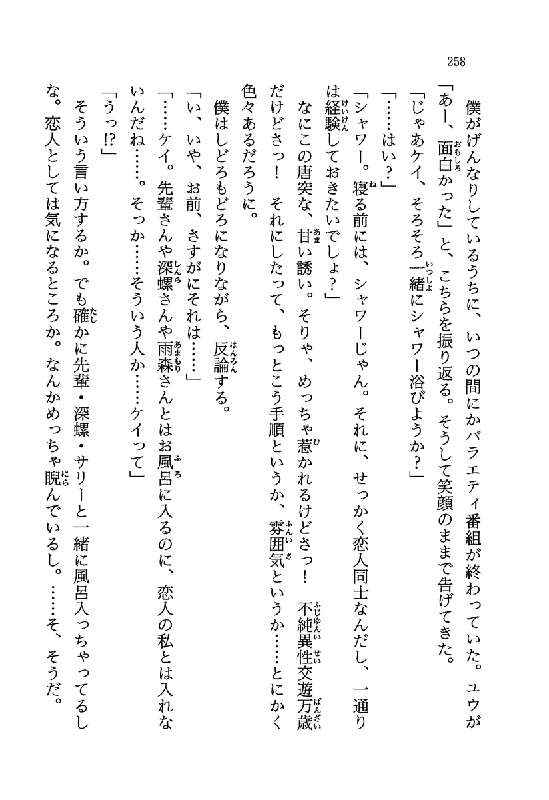 258
僕がげんなりしているうちに、いつの間にかバラエティ番組が終わっていた。ユウが
「あー、面白かった」と、こちらを振り返る。そうして笑顔のままで告げてきた。
「じゃあケイ、そろそろ一緒にシャワー浴びようか？」
「……はい？」
「シャワー。寝る前には、シャワーじゃん。それに、せっかく恋人同士なんだし、一通り
は経験しておきたいでしょ？」
なにこの唐突な、甘い誘い。そりゃ、めっちゃ惹かれるけどさっ！　不純異性交遊万歳
だけどさっ！　それにしたって、もっとこう手順というか、雰囲気というか……とにかく
色々あるだろうに。
僕はしどろもどろになりながら、反論する。
「い、いや、お前、さすがにそれは……」
「……ケイ。先輩さんや深螺さんや雨森さんとはお風呂に入るのに、恋人の私とは入れな
いんだね……。そっか……そういう人か……ケイって」
「うっ!?」
そういう言い方するか。でも確かに先輩・深螺・サリーと一緒に風呂入っちゃってるし
な。恋人としては気になるところか。なんかめっちゃ睨んでいるし。……そ、そうだ。